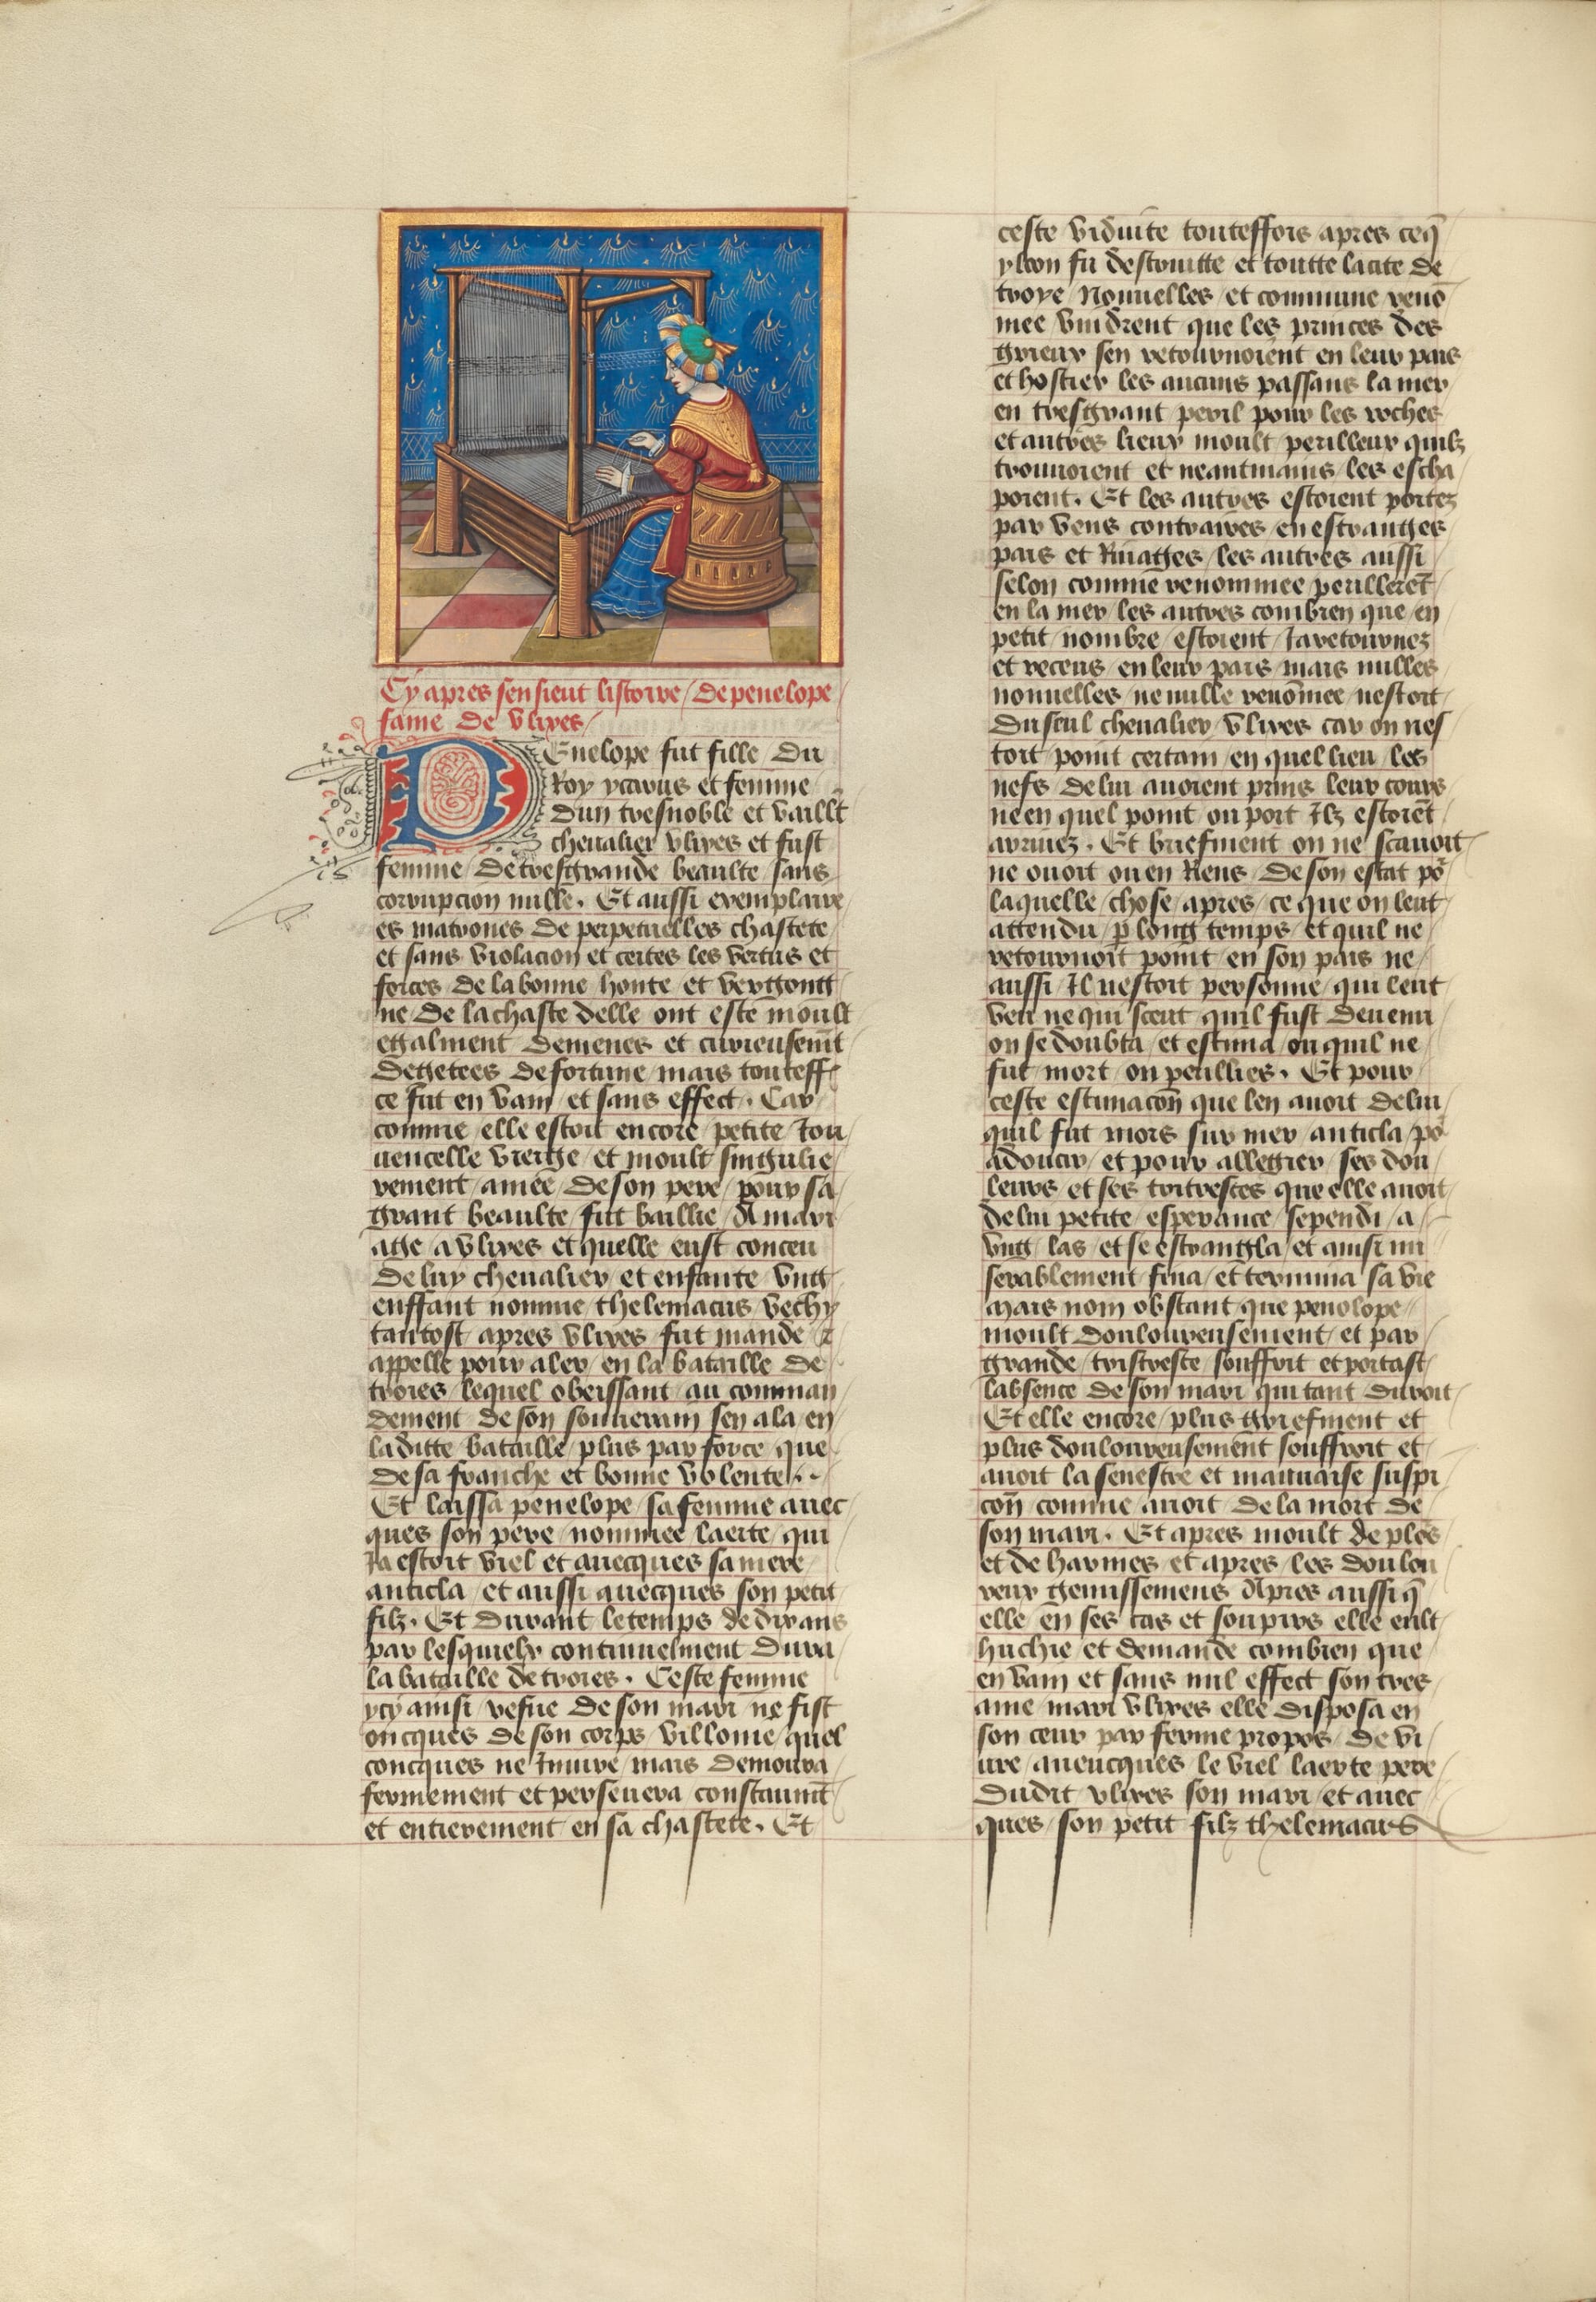 Cy apres sensieut listoire de penelope
fame de vlixes
Penelope fut fille du
Roy ycarus et femme
dun tresnoble et vaillt̄
cheualier vlixes et fust
femme de tresgrande beaulte sans
corrupcion nulle. Et aussi exemplaire
es matrones de perpetuelles chastete
et sans violacion et certes les vertus et
forces de la bonne honte et vergong
ne de la chaste delle ont este moult
egalment demenes et curieusemt̄
degetees de fortune mais touteff
ce fut en vain et sans effect. Car
comme elle estoit encore petite Jou
uencelle vierge et moult singulie
rement amee de son pere pour sa
grant beaulte fut baillie A mari
age a vlixes et quelle eust conceu
de luy cheualier et enfante vng
enffant nomme thelemacus vechy
tantost apres vlixes fut mande et
appelle pour aler en la bataille de
troies lequel obeissant au comman
dement de son souuerain sen ala en
la ditte bataille plus par force que
de sa franche et bonne volente.
Et laissa penelope sa femme auec
ques son pere nommee laerte qui
Ja estoit viel et auecques sa mere
anticla et aussi auecques son petit
filz. Et durant le temps de dix ans
par lesquielx continuelment dura
la bataille de troies. Ceste femme
ycy ainsi vefue de son mari ne fist
oncques de son corps villonie quel
concques ne Iniure mais demoura
fermement et perseuera constaumt̄
et entierement en sa chastete. Et
ceste viduite touteffois apres ceq̄
ylion fu destruitte et toutte la cite de
troye Nouuelles et commune renō
mee vindrent que les princes des
grieux sen retournoient en leur pais
et hostier les aucuns passans la mer
en tresgrant peril pour les roches
et autres lieux moult perilleux quilz
trouuoient et neantmains les escha
poient. Et les autres estoient portez
par vens contraires en estranges
pais et Riuages les autres aussi
selon comme renommee perillerēt
en la mer les autres combien que en
petit nombre estoient Ja retournez
et receus en leur pais mais nulles
nouuelles ne nulle renōmee nestoit
du seul cheualier vlixes car on nes
toit point certain en quel lieu les
nefs de lui auoient prins leur cours
ne en quel point ou port Ilz estoiēt
arriuez. Et briefment on ne scauoit
ne ouoit ou en Riens de son estat po
laquelle chose apres ce que on leut
attendu p̄ long temps et quil ne
retournoit point en son pais ne
aussi Il nestoit personne qui leut
veu ne qui sceut quil fust deuenu
on se doubta et estima ou quil ne
fut mort ou perilliez. Et pour
ceste estimacōn que len auoit de lui
quil fut mors sur mer anticla po
adoucir et pour allegier ses dou
leurs et ses tritresces que elle auoit
de lui petite esperance sependi a
vng las et se estrangla et ainsi mi
serablement fina et termina sa vie
Mais nom obstant que penolope
moult douloureusement et par
grande tristresse souffrit et portast
labsence de son mari qui tant duroit
Et elle encore plus griefment et
plus douloureusement souffroit et
auoit la senestre et mauuaise suspi
cōn comme auoit de la mort de
son mari. Et apres moult de plors
et de harmes et apres les doulou
reux gemissemens Apres aussi q̄
elle en ses cas et soupirs elle eult
huchie et demande combien que
en vain et sans nul effect son tres
ame mari vlixes elle disposa en
son ceur par ferme propos de vi
ure aueucques le viel laerte pere
dudit vlixes son mari et auec
ques son petit filz thelemacus